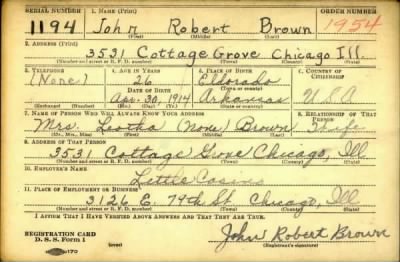 SERIAL NUMBER 1. NAME (Print) ORDER NUMBER
1194 John Robert Brown 1954
(First) (Middle) (Last)
2. ADDRESS (Print)
3531 Cottage Grove Chicago Ill.
(Number and street or R. F. D. number) (Town) (County) (State)
3. TELEPHONE 4. AGE IN YEARS 5. PLACE OF BIRTH 6. COUNTRY OF CITIZENSHIP
(None) 26 Eldorado
DATE OF BIRTH (Town or county)
Apr. 30, 1914 Arkansas U.S.A
(Exchange) (Number) (Mo.) (Day) (Yr.) (State or country)
7. NAME OF PERSON WHO WILL ALWAYS KNOW YOUR ADDRESS 8. RELATIONSHIP OF THAT PERSON
Mrs. (None) Brown Wife
(Mr., Mrs., Miss) (First) (Middle) (Last)
9. ADDRESS OF THAT PERSON
3531 Cottage Grove Chicago, Ill
(Number and street or R. F. D. number) (Town) (County) (State)
10. EMPLOYER'S NAME
Little Casino
11. PLACE OF EMPLOYMENT OR BUSINESS
3126 E. 79th St. Chicago, Ill
(Number and street or R. F. D. number) (Town) (County) (State)
I AFFIRM THAT I HAVE VERIFIED ABOVE ANSWERS AND THAT THEY ARE TRUE.
REGISTRATION CARD
D. S. S. Form 1 (over) John Robert Brown
(Registrant's signature)